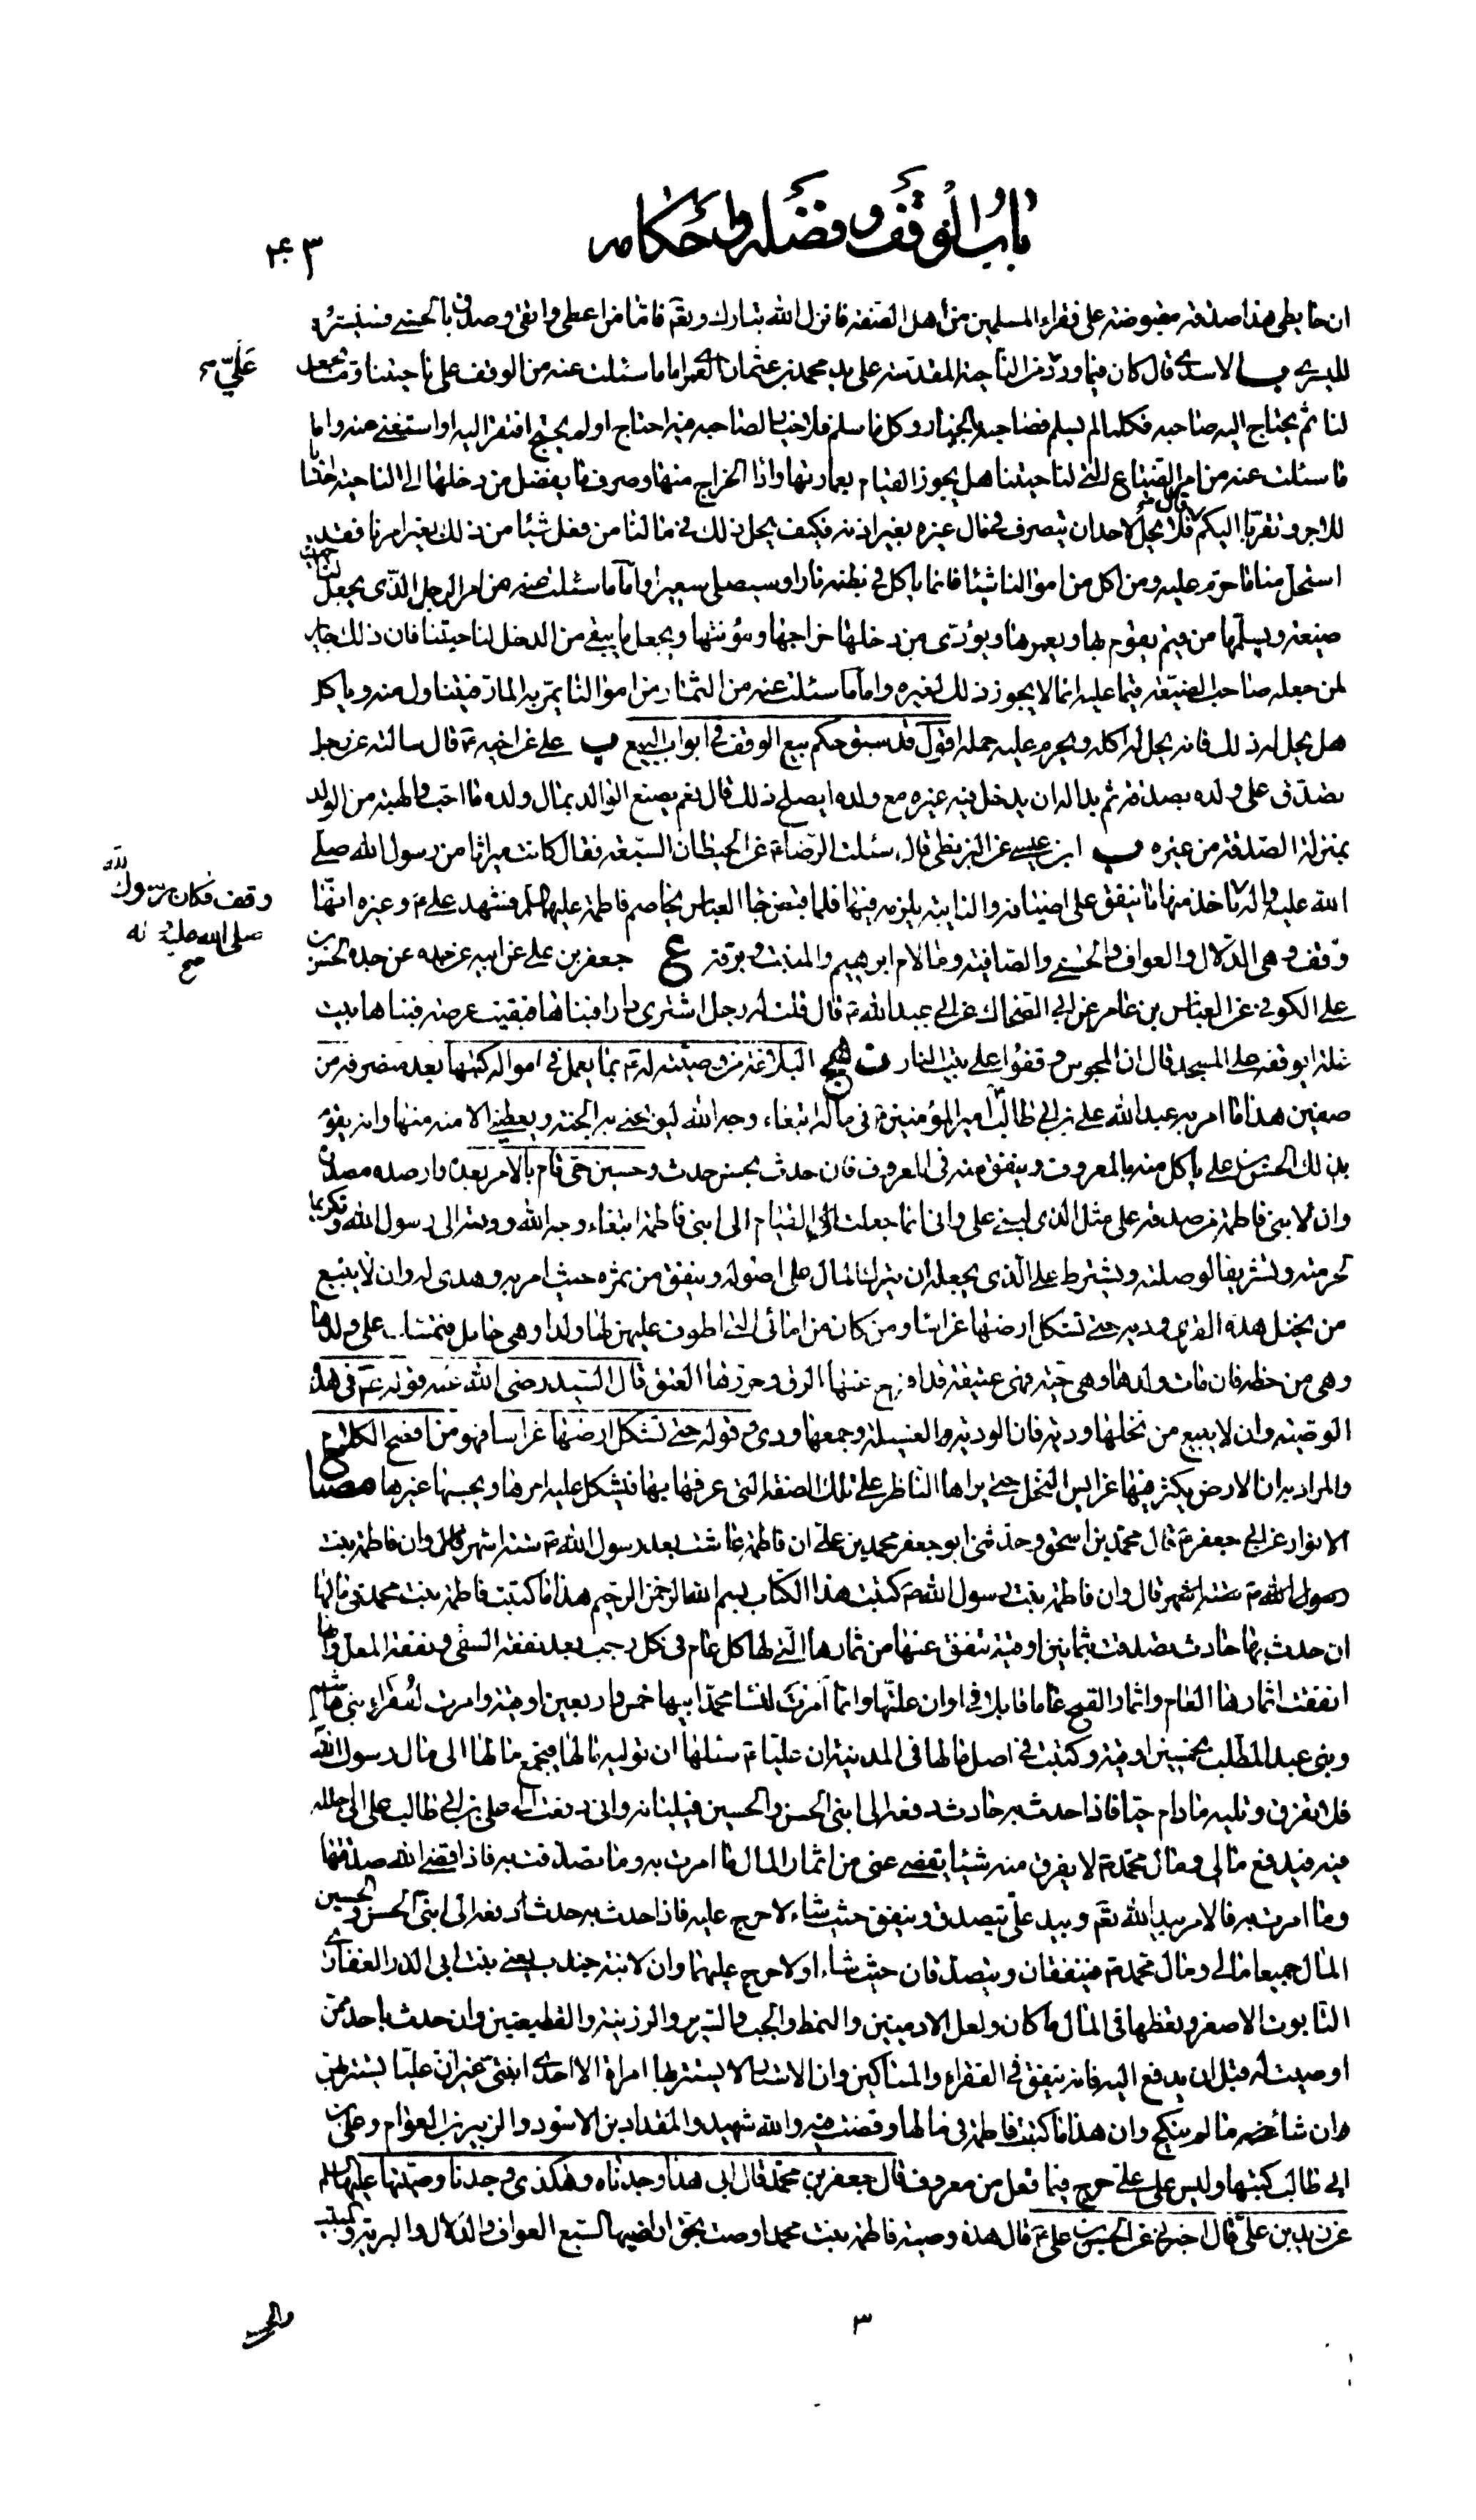 باب الوقف وفضله واحكامه
٤٣
ان حايطى هذا صدقة مقبوضة على فقراء المسلمين من اهل الصفة فانزل الله تبارك وتعم فاما من اعطى واتقى وصدق بالحسنى فسنيسره
لليسرى الاسدى قال كان فيما ورد من الناحية المقدسة على يد محمد بن عثمان العمرى اما ما سئلت عنه من الوقف على ناحيتنا وما يجعل
علىّ
لنا ثم يحتاج اليه صاحبه فكلما لم يسلم فصاحبه بالخيار وكل ما سلم فلا خيار لصاحبه فيه احتاج او لم يحتج افتقر اليه او استغنى عنه واما
ما سئلت عنه من امر الضياع التى لناحيتنا هل يجوز القيام بعمارتها واداء الخراج منها وصرف ما يفضل من دخلها الى الناحية احتسابا
للاجر وتقربا اليكم فلا يحل لاحد ان يتصرف فى مال غيره بغير اذنه فكيف يحل ذلك فى مالنا من فعل شيئا من ذلك بغير امرنا فقد
استحل منا ما حرم عليه ومن اكل من اموالنا شيئا فانما ياكل فى بطنه نارا وسيصلى سعيرا واما ما سئلت عنه من امر الرجل الذى يجعل لناحيتنا
ضيعة ويسلمها من قيم يقوم بها ويعمرها ويؤدى من دخلها خراجها ومؤنتها ويجعل ما يبقى من الدخل لناحيتنا فان ذلك جايز
لمن جعله صاحب الضيعة قيما عليها انما لا يجوز ذلك لغيره واما ما سئلت عنه من الثمار من اموالنا يمر به المار فيتناول منه وياكل
هل يحل له ذلك فانه يحل له اكله ويحرم عليه حمله اقول قد سبق حكم بيع الوقف فى ابواب البيع ب على عن اخيه ع قال سالته عن رجل
تصدق على ولده بصدقة ثم بدا له ان يدخل فيه غيره مع ولده ايصلح ذلك قال نعم يصنع الوالد بمال ولده ما احب والهبة من الولد
بمنزلة الصدقة من غيره ب ابن عيسى عن البزنطى قال سئلت الرضا ع عن الحيطان السبعة فقال كانت ميراثا من رسول الله صلى
وقف فكان رسول الله
صلى الله عليه وآله
صح
الله عليه واله ياخذ منها ما ينفق على اضيافه والنايبة يلزمه فيها فلما قبض جاء العباس يخاصم فاطمة عليها السلم فشهد على ع وغيره انها
وقف وهى الدلال والعواف والحسنى والصافية وما لام ابرهيم والمنبت وبرقة ع جعفر بن على عن ابيه عن جده عن جده الحسن بن
على الكوفى عن العباس بن عامر عن ابى الضحاك عن ابى عبد الله ع قال قلت له رجل اشترى دارا فبناها فبقيت عرصة فبناها بيت
غلة ايوقفه على المسجد قال ان المجوس وقفوا على بيت النار نهج البلاغة من وصيته له ع بما يعمل فى امواله كتبها بعد منصرفه من
صفين هذا ما امر به عبد الله على بن ابى طالب امير المؤمنين ع فى ماله ابتغاء وجه الله ليولجنى به الجنة ويعطينى الامنة منها وانه يقوم
بذلك الحسن بن على ياكل منه بالمعروف وينفق منه فى المعروف فان حدث بحسن حدث وحسين حى قام بالامر بعده واصدره مصدره
وان لابنى فاطمة من صدقة على مثل الذى لبنى على وانى انما جعلت القيام الى ابنى فاطمة ابتغاء وجه الله وقربة الى رسول الله وتكريما
لحرمته وتشريفا لوصلته ويشترط على الذى يجعله ان يترك المال على اصوله وينفق من ثمره حيث امر به وهدى له وان لا يبيع
من نخيل هذه القرى ودية حتى تشكل ارضها غراسا ومن كان من امائى التى اطوف عليهن لها ولد او هى حامل فتمسك على ولدها
وهى من حظه فان مات ولدها وهى حية فهى عتيقة قد افرج عنها الرق وحررها العتق قال السيد رضى الله عنه قوله ع فى هذه
الوصية وان لا يبيع من نخلها ودية فان الودية الفسيلة وجمعها ودى وقوله حتى تشكل ارضها غراسا فهو من افصح الكلام
والمراد به ان الارض يكثر فيها غراس النخل حتى يراها الناظر على تلك الصفة التى عرفها بها فيشكل عليه امرها ويحسبها غيرها مصباح
الانوار عن ابى جعفر ع قال محمد بن اسحق وحدثنى ابو جعفر محمد بن على ان فاطمة عاشت بعد رسول الله ص ستة اشهر قال وان فاطمة بنت
رسول الله ص ستة اشهر قال وان فاطمة بنت رسول الله ص كتبت هذا الكتاب بسم الله الرحمن الرحيم هذا ما كتبت فاطمة بنت محمد فى مالها
ان حدث بها حادث تصدقت بثمانين اوقية تنفق عنها من ثمارها التى لها كل عام فى كل رجب بعد نفقة السقى ونفقة المغل وانها
انفقت اثمارها العام واثمار القمح عاما قابلا فى اوان غلتها وانما امرت لنساء محمد ابيها خمس واربعين اوقية وامرت لفقراء بنى هاشم
وبنى عبد المطلب بخمسين اوقية وكتبت فى اصل مالها فى المدينة ان عليا ع سئلها ان توليه مالها فيجمع مالها الى مال رسول الله
فلا تفرق ويليه مادام حيا فاذا حدث به حادث دفعه الى ابنى الحسن والحسين فيليانه وانى دفعت الى على بن ابى طالب على انى احلله
فيه فيدفع مالى ومال محمد ص لا يفرق منه شيئا يقضى عنى من اثمار المال ما امرت به وما تصدقت به فاذا قضى الله صدقتها
وما امرت به فالامر بيد الله تعم وبيد على يتصدق وينفق حيث شاء لا حرج عليه فاذا حدث به حدث دفعه الى ابنى الحسن والحسين
المال جميعا مالى ومال محمد ص فينفقان ويتصدقان حيث شاءا ولا حرج عليهما وان لابنة جندب يعنى بنت ابى الذر الغفارى
التابوت الاصغر وتغطها فى المال ما كان ونعلى الادميتين والنمط والجب والسرير والزربية والقطيفتين وان حدث باحد ممن
اوصيت له قبل ان يدفع اليه فانه ينفق فى الفقراء والمساكين وان الاستار لا يستتر بها امراة الا احدى ابنتى غير ان عليا يستتر بهن
ان شاء ما لم ينكح وان هذا ما كتبت فاطمة فى مالها وقضت فيه والله شهيد والمقداد بن الاسود والزبير بن العوام وعلى بن
ابى طالب كتبها وليس على على حرج فيما فعل من معروف قال جعفر بن محمد قال ابى هذا وجدناه وهكذى وجدنا وصيتها عليها السلم
عن زيد بن على قال اخبرنى عن الحسن بن على ع قال هذه وصية فاطمة بنت محمد اوصت بحوائطها السبع العواف والدلال والبرقة والمثيب
٣
والحسنى